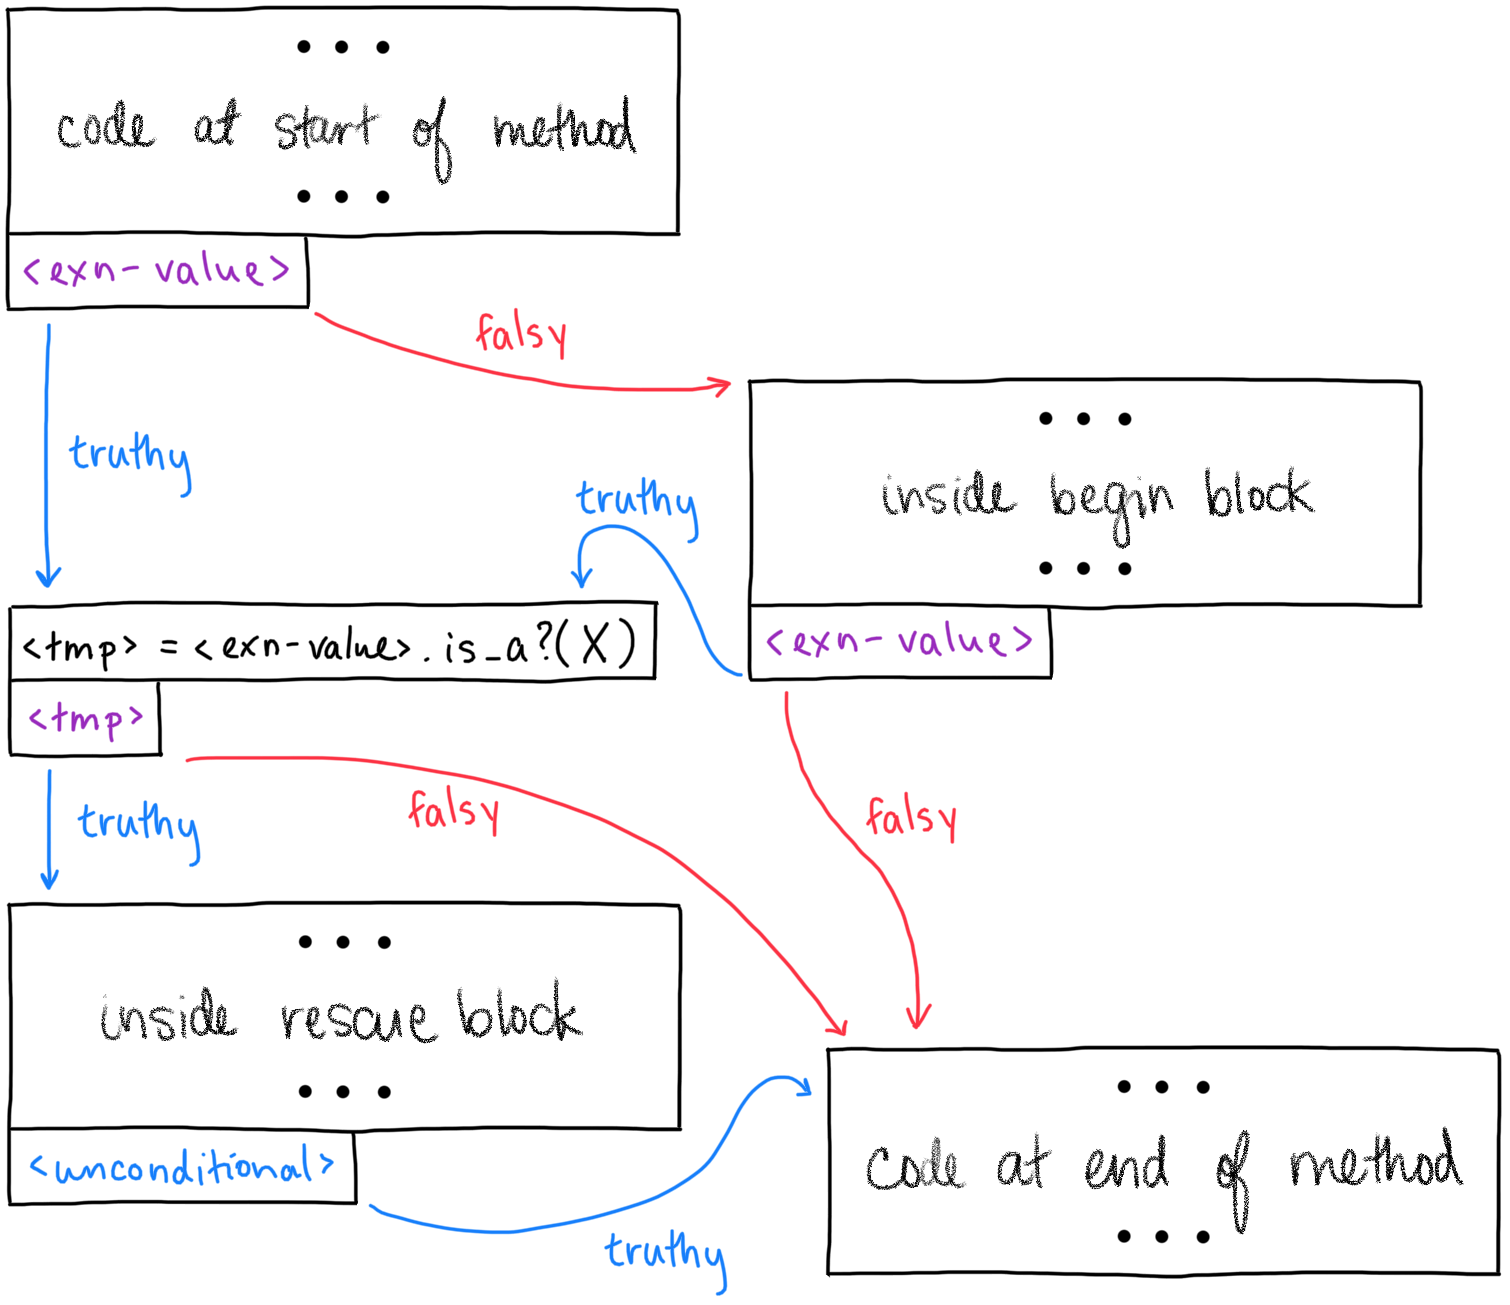 • • •
code at start of method
• • •
<exn-value>
falsy
truthy
• • •
inside begin block
• • •
<exn-value>
truthy
<tmp> = <exn-value>.is_a?(X)
<tmp>
truthy
falsy
falsy
• • •
inside rescue block
• • •
<unconditional>
truthy
• • •
code at end of method
• • •